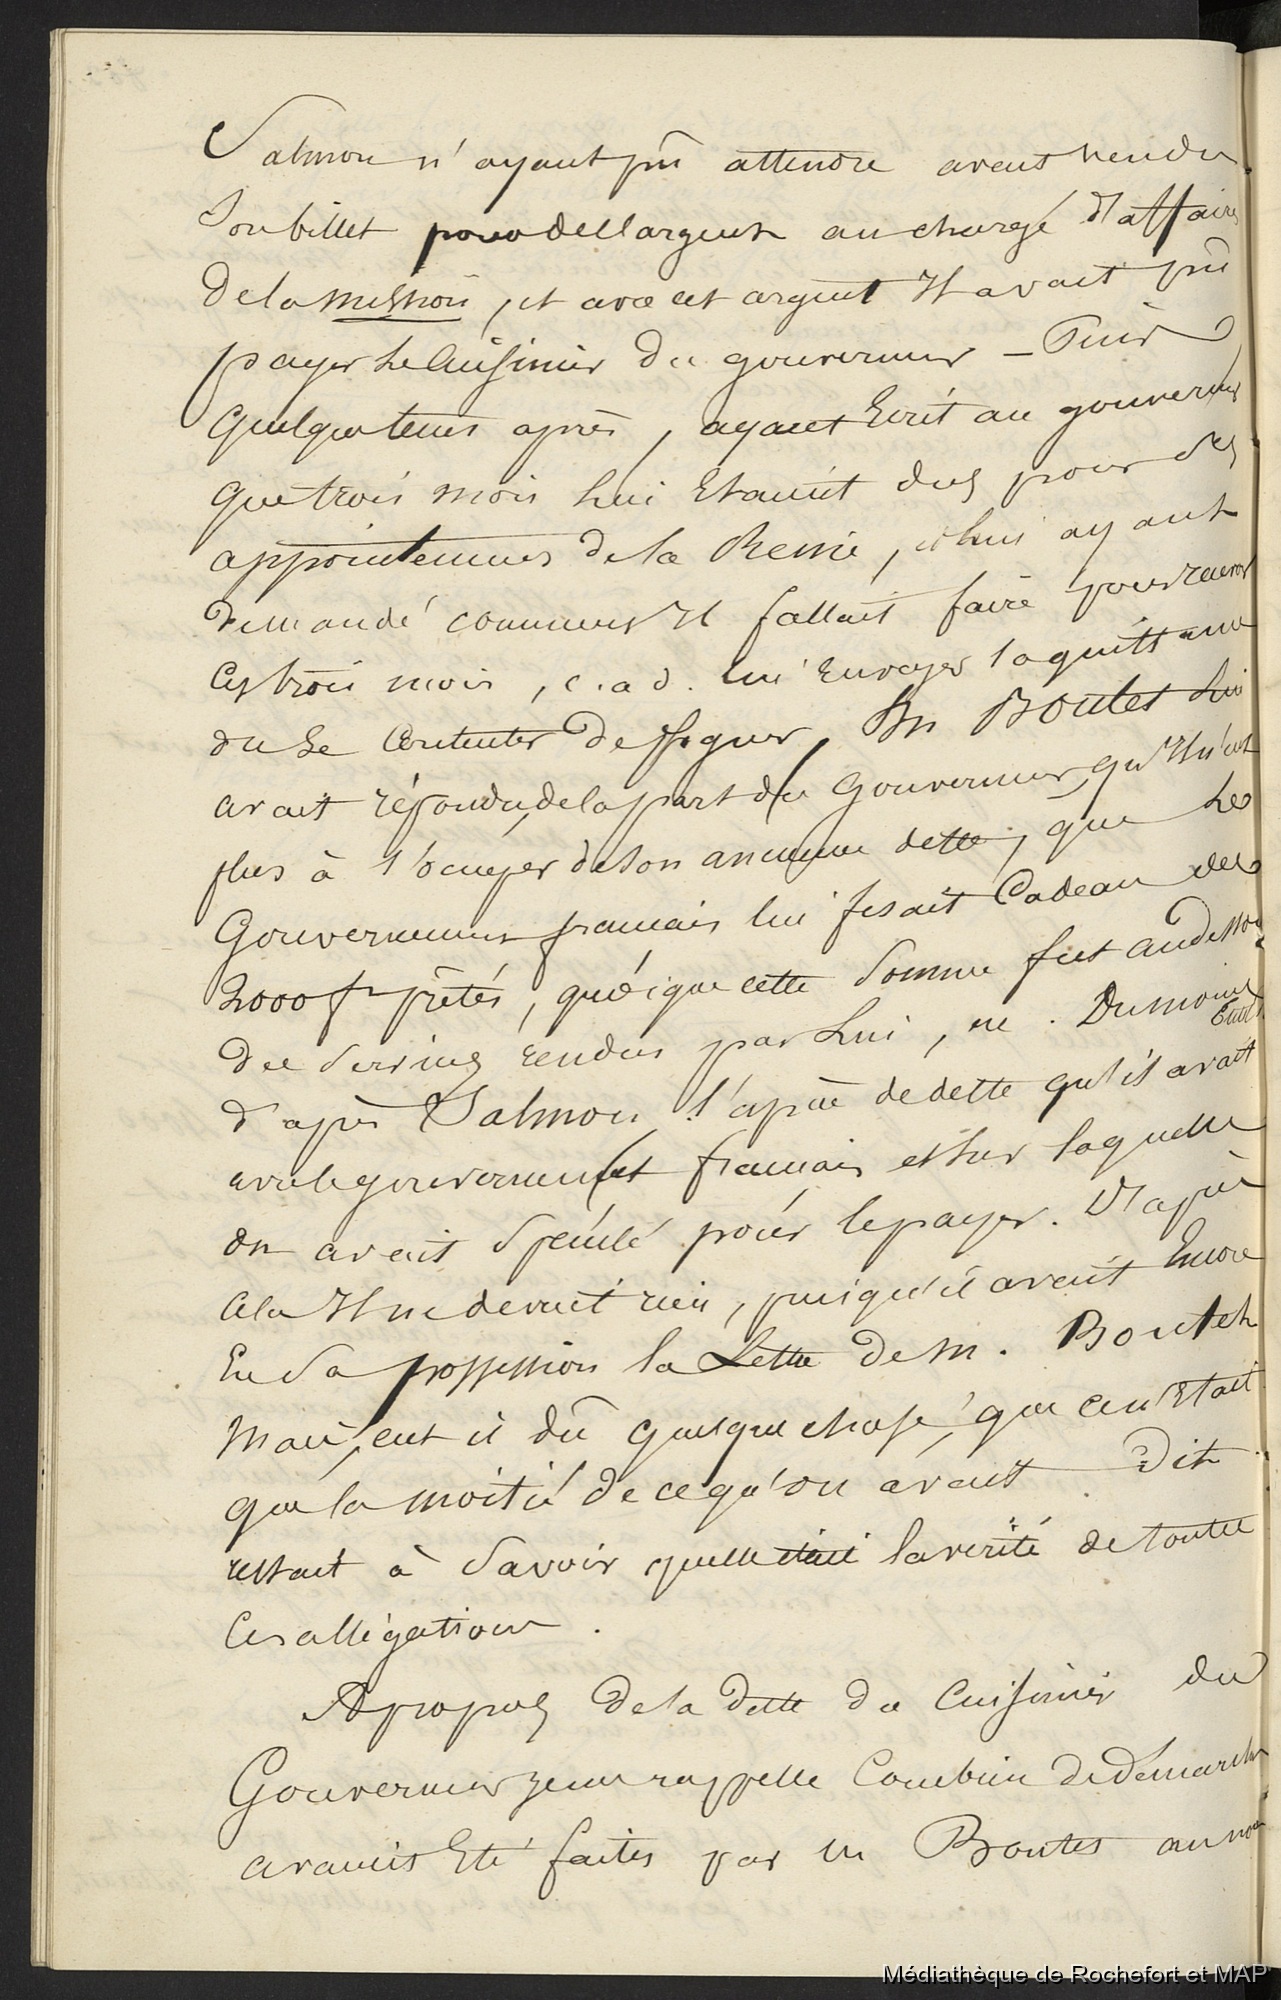 Salmon n'ayant pû attendre avait vendu
Son billet pour dell argent au chargé d'affaires
de la mission, et avec cet argent Il avait pû
payer Le Cuisinier du gouverneur – Puis
quelque tems après, ayant Ecrit au gouverneur
que trois mois Lui Etaient dus pour des
appointemens de la Reine, et lui ayant
demandé comment Il fallait faire pour ravoir
Ces trois mois, c. a d. lui Envoyer la quittance
ou Se Contenter de signer, M Boutet Lui
avait répondu, de la part du Gouverneur, qu'Il n'eut
plus à s'ocuper de son ancienne dette, que Le
Gouvernement francais lui fesait Cadeau des
2000 f prêtés, quoique cette Somme fut au dessous
des Services rendus par Lui, m. Dumoins
Etoit
d'après Salmon l'apui de dette qu'il avait
avec le gouvernement francais et Sur laquelle
on avait Spéculé pour le payer. D'après
Cela Il ne devait rien, puisqu'il avait Encore
En Sa possession la Lettre de M. Boutet
Mais, eut il dû quelque chose, que ce n'Etait
que la moitié de ce qu'on avait Dit
restait à Savoir quelle était la verité de toutes
Ces allégations.
A propos de la dette du Cuisinier du
Gouverneur je me rappelle Combien de démarches
avaient Eté faites par M Boutet au nom
Médiathèque de Rochefort et MAP